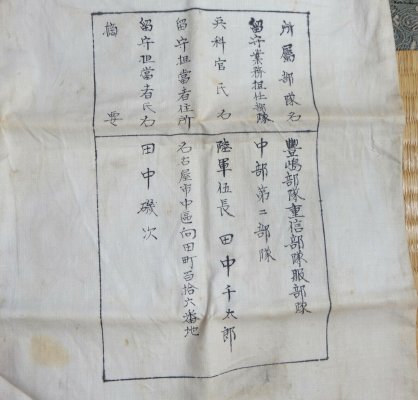 所屬部隊名 豐嶋部隊重信部隊服部隊
留守業務担任部隊 中部第二部隊
兵科官氏名 陸軍伍長 田中千太郎
留守担當者住所 名古屋市中區向田町百拾六番地
留守担當者氏名 田中磯次
摘要